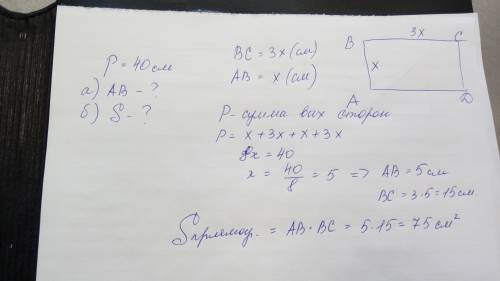 P = 40 см
а) AB - ?
б) S - ?
BC = 3x (см)
AB = x (см)
B
3x
C
x
A
D
P - сумма всих сторон
P = x + 3x + x + 3x
8x = 40
x = 40/8 = 5 => AB = 5 см
BC = 3·5 = 15 см
Sпрямоуг. = AB · BC = 5·15 = 75 см²